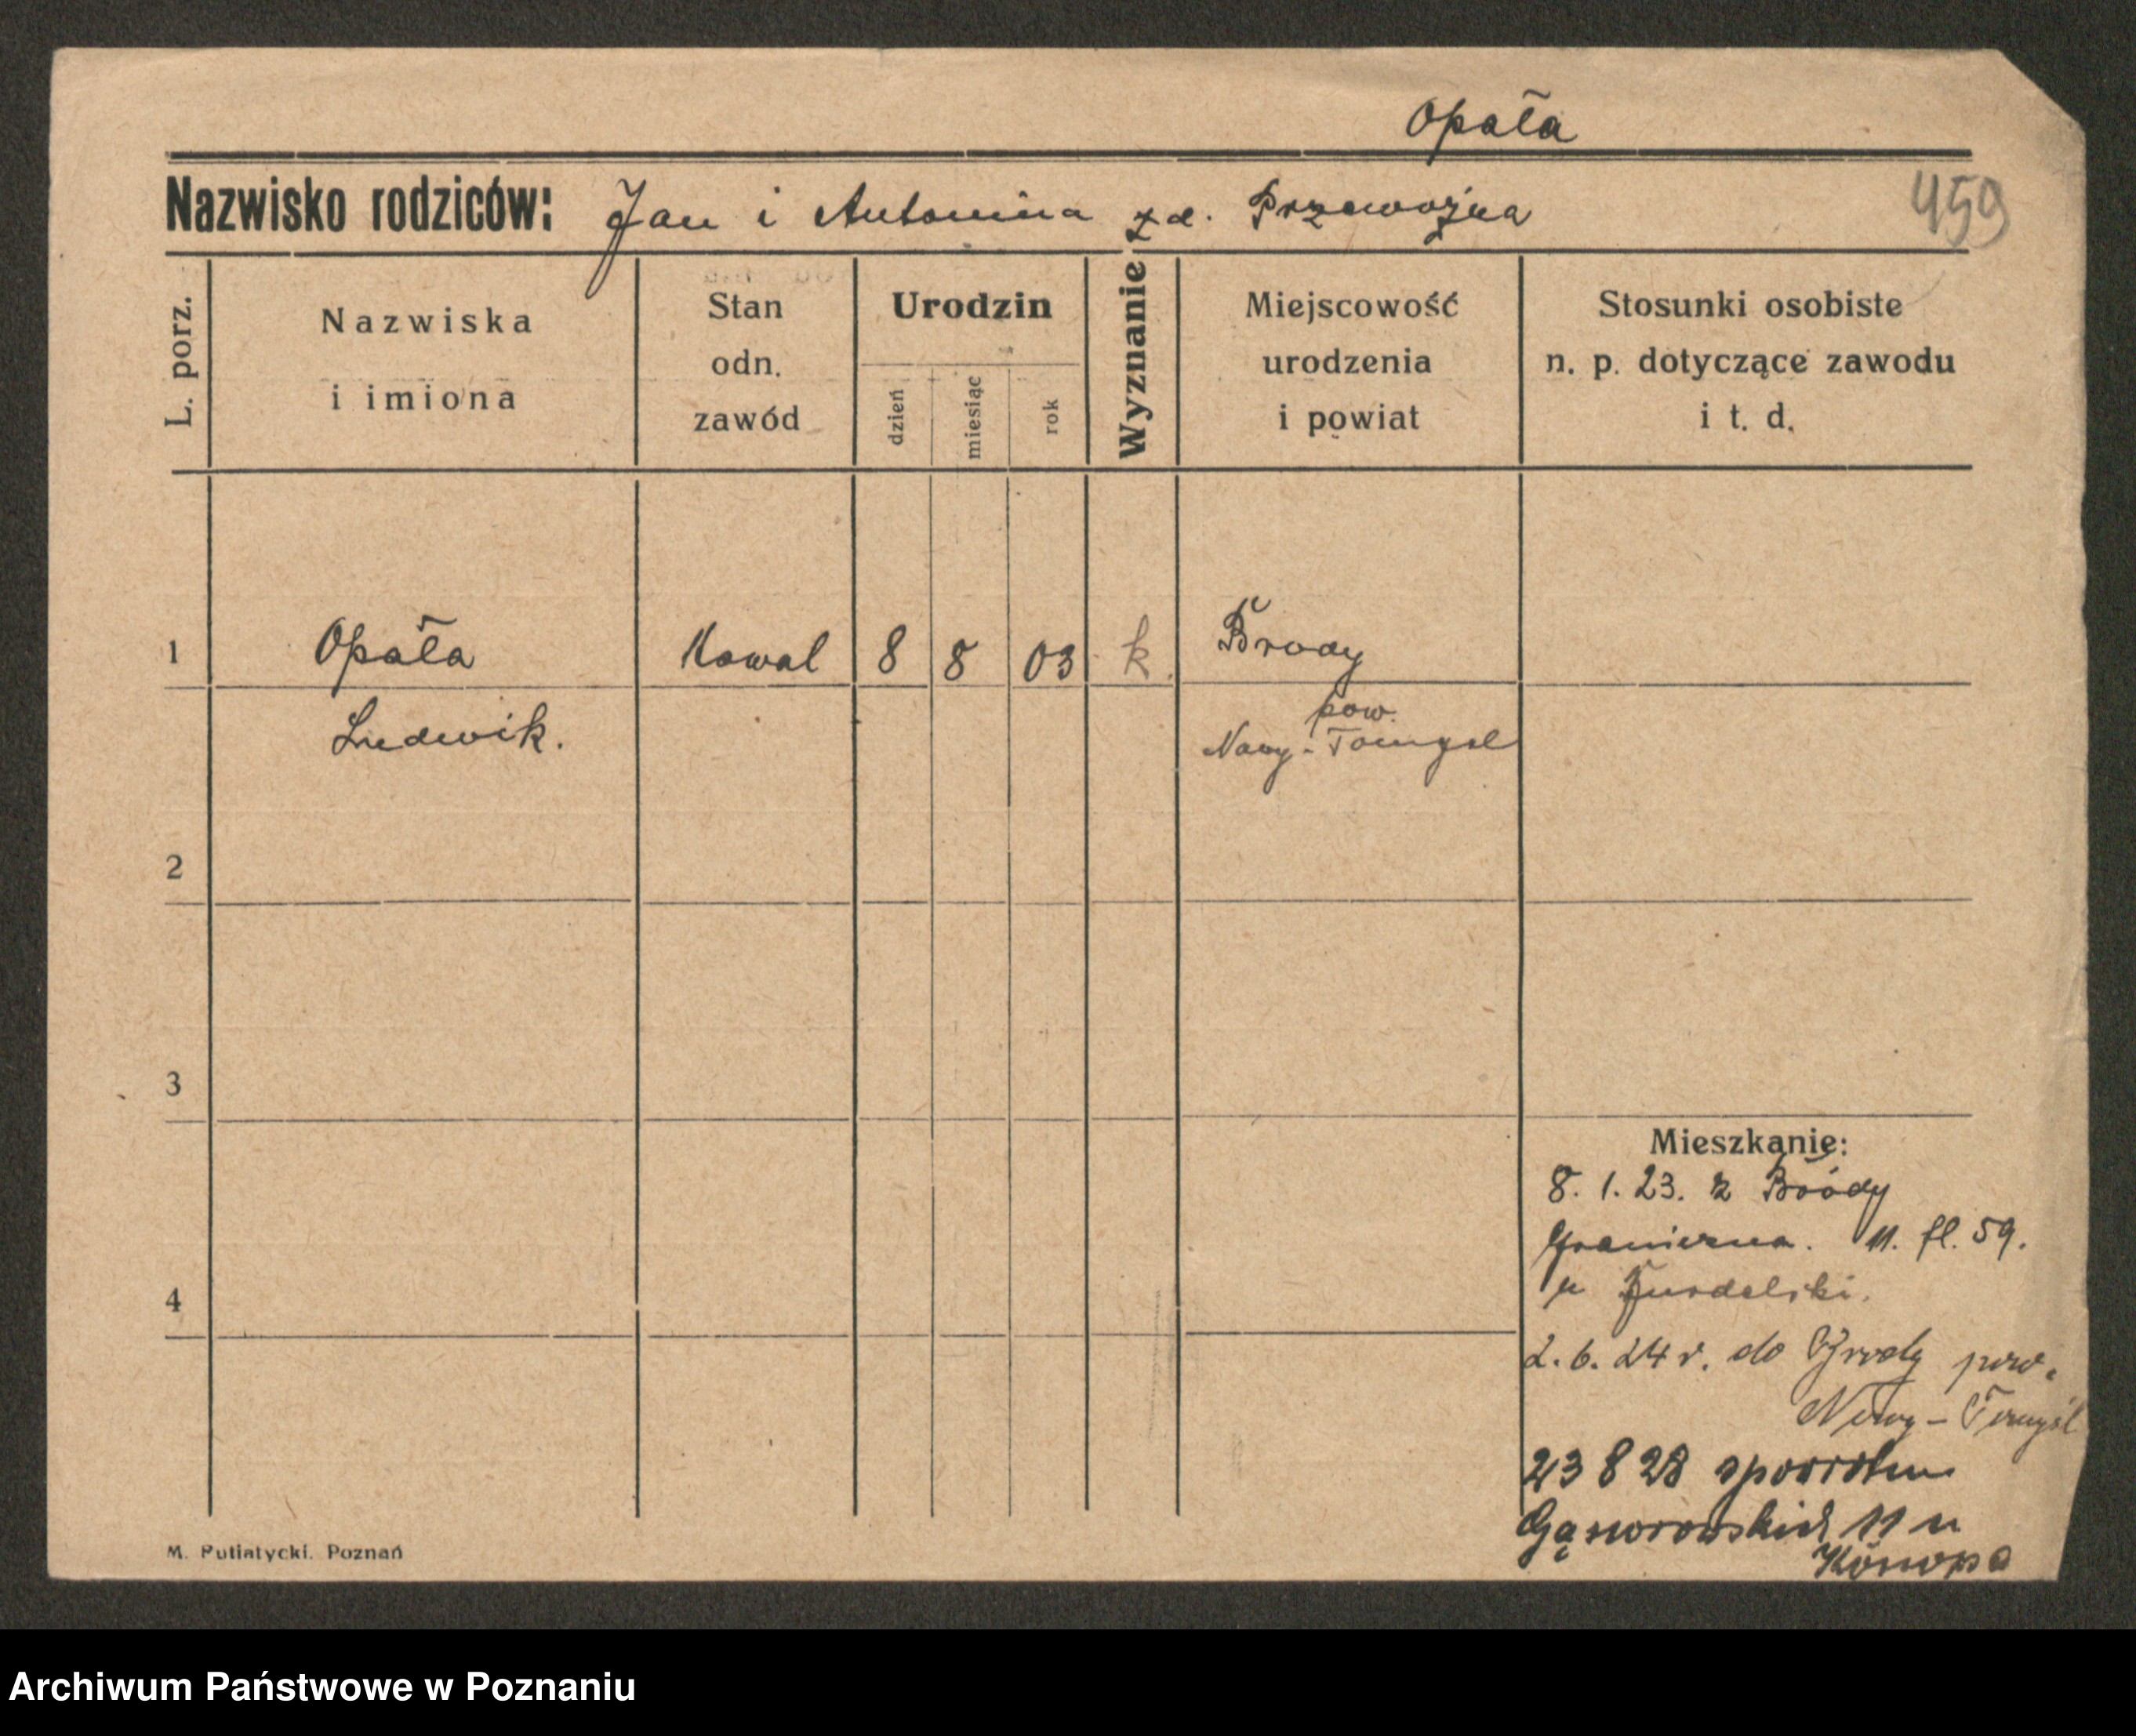 Opała
Nazwisko rodziców: Jan i Antonina zd. Przewoźna
459
L. porz.
Nazwiska
i imiona
Stan
odn.
zawód
Urodzin
dzień
miesiąc
rok
Wyznanie
Miejscowość
urodzenia
i powiat
Stosunki osobiste
n. p. dotyczące zawodu
i t. d.
1 Opała Kowal 8 8 03 k Brody
Ludwik. pow.
Nowy-Tomysl
2
3
4
Mieszkanie:
8. 1. 23. z Brody
Graniczna. 11. fl. 59.
u
2. 6. 24 r. do Brody pow.
Nowy-Tomyśl
23 8 28 spowrotem
Gąsiorowskich 11 u
Konopa
M. Putiatycki. Poznań
Archiwum Państwowe w Poznaniu